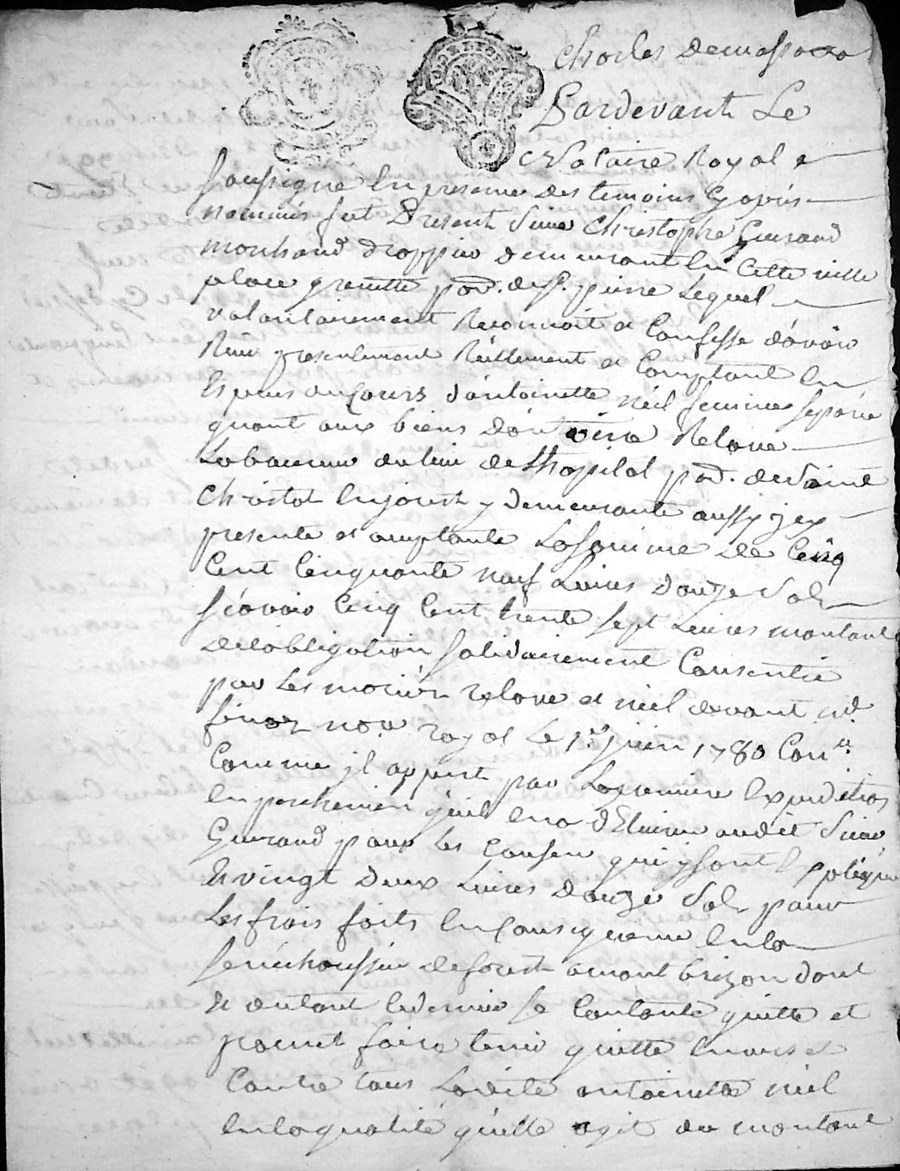 Charles
Pardevant Le
Notaire Royal
soussigné En presence des temoins Cy après
nommés fut Present Sieur Christophe Guerand
marchand drappier demeurant En Cette ville
place grenette par. de St. pierre Lequel
volontairement Reconnoit et Confesse d'avoir
Reçu presentement Réellement et Comptant En
Espèces au Cours d'antoinette Niel femme séparée
quant aux biens d'ontoine Relave
Laboureur du lieu de L'hopital par. de Saint
Christot En jarest y demeurante aussy jcy
presente et acceptante La somme De Cinq
Cent Cinquante neuf Livres Douze Sols
Sçavoir Cinq Cent trente sept Livres montant
de l'obligation solidairement Consentie
par Les mariés relave et niel devant me
finaz nore royal Le 1er juin 1780 Con.llé
Comme jl appert par La première Expedition
En parchemin qu'il En a d'Elivré audit Sieur
Guerand pour Les Causes qui y sont Expliqué
Et vingt deux Livres Douze Sols pour
Les frais faits En Consequence En la
sénéchaussée de forest a mont brizon dont
Et du tout Ce dernier se Contente quitte et
promet faire tenir quitte Envers et
Contre tous Ladite antoinette niel
En la qualité qu'elle agit du montant